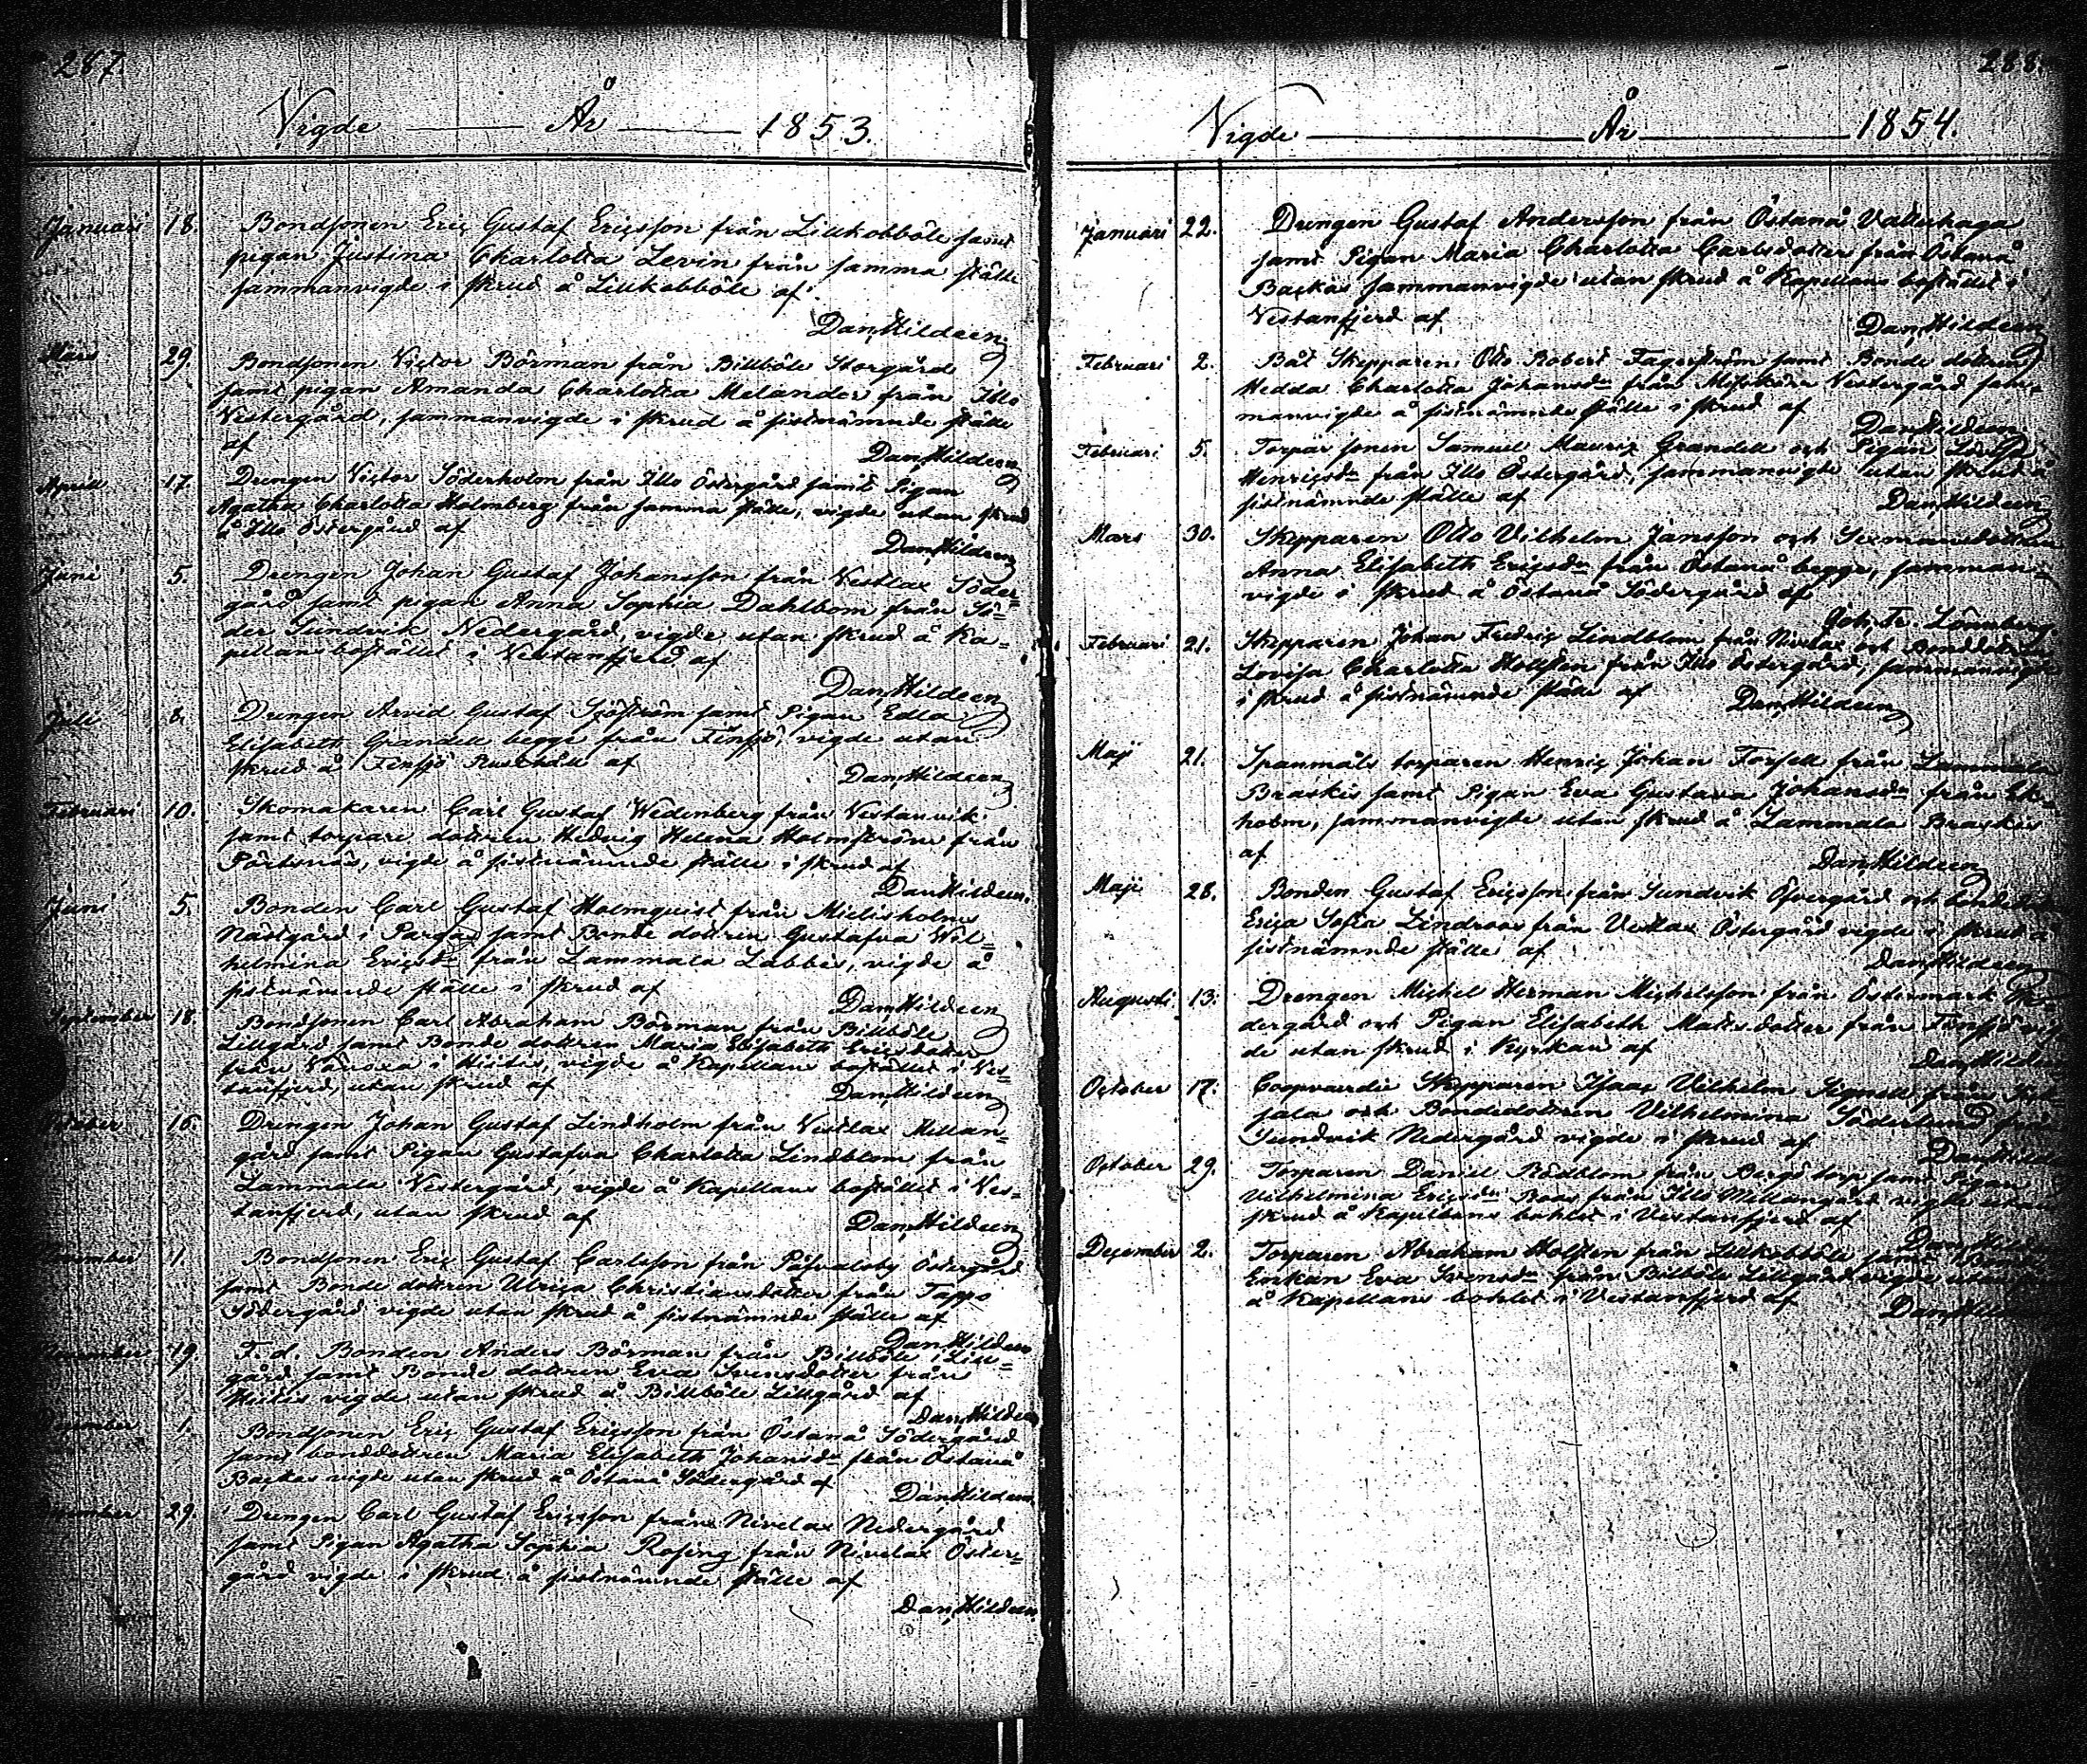 287.
Vigde År 1853.
Januari 18. Bondsonen Eric Gustaf Ericsson från Lillkobböle samt
pigan Justina Charlotta Levin från samma ställe
sammanvigde i skrud å Lillkobböle af
Dan, Hildeen
Mars 29. Bondsonen Victor Börman från Billböle Storgård
samt pigan Amanda Charlotta Melander från Illo
Vestergård, sammanvigde i skrud å sistnämnde ställe
af
Dan, Hildeen
Aprill 17. Drengen Victor Söderholm från Illo Östergård samt Pigan
Agatha Charlotta Holmberg från samma ställe, vigde utan skrud
å Illo Östergård af
Dan, Hildeen
Juni 5. Drengen Johan Gustaf Johansson från Vestlax Söder=
gård samt pigan Anna Sophia Dahlbom från Sö=
der Sundvik Nedergård, vigde utan skrud å Ka=
pellans bostället i Vestanfjerd af
Dan, Hildeen
Juli 8. Drengen Arvid Gustaf Sjöström samt Pigan Edla
Elisabeth Grandell begge från Finsjö, vigde utan
skrud å Finsjö Rusthåll af
Dan, Hildeen
Februari 10. Skomakaren Carl Gustaf Wedenberg från Vestanvik
samt torpare dottren Hedvig Helena Holmström från
vigde å sistnämnde ställe i skrud af
Dan, Hildeen.
Juni 5. Bonden Carl Gustaf Holmquist från Mielisholm
Nästgård i Pargas samt Bonde dottren Gustafva Wil=
helmina Ericsdr från Lammala Labbis, vigde å
sistnämnde ställe i skrud af
Dan, Hildeen
September 18. Bondsonen Carl Abraham Börman från Billböle
Lillgård samt Bonde dottren Maria Elisabeth Ericsdotter
från Vänoxa i Hiitis, vigde å Kapellans bostället i Ves=
tanfjerd, utan skrud af
Dan, Hildeen
October 16. Drengen Johan Gustaf Lindholm från Vestlax Mellan=
gård samt Pigan Gustafva Charlotta Lindblom från
Lammala Vestergård, vigde å Kapellans bostället i Ves=
tanfjerd, utan skrud af
Dan, Hildeen
November 1. Bondsonen Eric Gustaf Carlsson från Påfvalsby Östergård
samt Bonde dottren Ulrica Christiansdotter från Tappo
Södergård vigde utan skrud å sistnämnde ställe af
Dan, Hildeen
November 19. F. d. Bonden Anders Börman från Billböle Lill=
gård samt Bonde dottren Eva Svensdotter från
Hiitis vigde utan skrud å Billböle Lillgård af
Dan, Hildeen
December 1. Bondsonen Eric Gustaf Ericsson från Östanå Södergård
samt bonddottren Maria Elisabeth Johansdr från Östanå
Backas vigde utan skrud å Östanå Södergård af
Dan, Hildeen
December 29. Drengen Carl Gustaf Ericsson från Nivelax Nedergård
samt Pigan Agatha Sophia Rosing från Nivelax Öster=
gård vigde i skrud å sistnämnde ställe af
Dan, Hildeen
288.
Vigde År 1854.
Januari 22. Drengen Gustaf Andersson från Östanå Vattuhaga
samt Pigan Maria Charlotta Carlsdotter från Östanå
Backas sammanvigde utan skrud å Kapellans bostället i
Vestanfjerd af
Dan, Hildeen
Februari 2. Båt Skepparen Otto Robert Fagerström samt Bonde dottren
Hedda Charlotta Johansdr från Misskärr Vestergård sam=
manvigde å sistnämnde ställe i skrud af
Dan, Hildeen
Februari 5. Torpar sonen Samuel Mauriz Grandell och Pigan
Henricsdr från Illo Östergård, sammanvigde utan skrud å
sistnämnde ställe af
Dan, Hildeen
Mars 30. Skepparen Otto Vilhelm Jansson och Sexmansdottren
Anna Elisabeth Ericsdr från Östanå begge, samman=
vigde i skrud å Östanå Södergård af
Joh. Fr. Lönnberg.
Februari 21. Skepparen Johan Fredric Lindblom från Nivelax och Bonddottren
Lovisa Charlotta Hollsten från Illo Östergård, sammanvigde
i skrud å sistnämnde ställe af
Dan, Hildeen
Maji 21. Spanmåls torparen Henric Johan Forsell från Lammala
Braskis samt Pigan Eva Gustava Johansdr från Ek=
holm, sammanvigde utan skrud å Lammala Braskis
af
Dan, Hildeen
Maji 28. Bonden Gustaf Ericsson från Sundvik Öfvergård och
Erica Sofia Lindroos från Vestlax Östergård vigde i skrud å
sistnämnde ställe af
Dan, Hildeen
Augusti 13. Drengen Michel Herman Michelsson från Östermark
dergård och Pigan Elisabeth Mattsdotter från Finsjö vig
de utan skrud i Kyrkan af
Dan, Hildeen
October 17. Coopvardie Skepparen Isaac Vilhelm Signell från
sala och Bondedottren Vilhelmina Söderlund från
Sundvik Nedergård vigde i skrud af
Dan, Hildeen
October 29. Torparen Daniel Rödblom från Bergö torp samt Pigan
Vilhelmina Ericsdr Boos från Illo Mellangård vigde utan
skrud å Kapellans bohlet i Vestanfjerd af
Dan, Hildeen
December 2. Torparen Abraham Holsten från Lillkobböle samt
Enkan Eva Svensdr från Billböle Lillgård vigde utan
å Kapellans bohlet i Vestanfjerd af
Dan, Hildeen